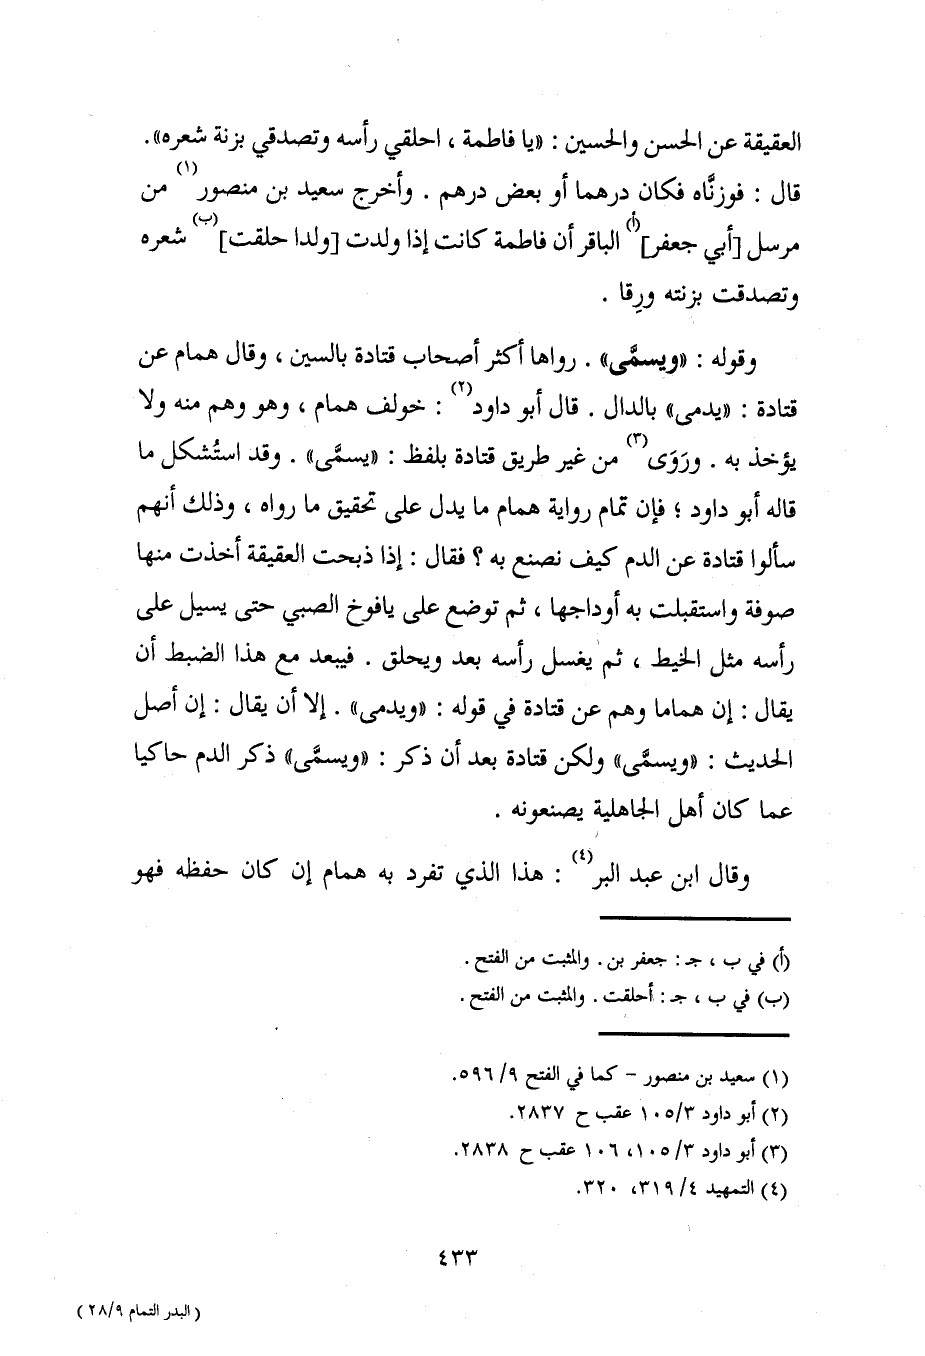 العقيقة عن الحسن والحسين : «يا فاطمة ، احلقي رأسه وتصدقي بزنة شعره».
قال : فوزنَّاه فكان درهما أو بعض درهم . وأخرج سعيد بن منصور(١) من
مرسل [أبي جعفر](أ) الباقر أن فاطمة كانت إذا ولدت [ولدا حلقت](ب) شعره
وتصدقت بزنته ورِقا .
وقوله : «ويسمَّى» . رواها أكثر أصحاب قتادة بالسين ، وقال همام عن
قتادة : «يدمى» بالدال . قال أبو داود(٢) : خولف همام ، وهو وهم منه ولا
يؤخذ به . ورَوَى(٣) من غير طريق قتادة بلفظ : «يسمَّى» . وقد استُشكل ما
قاله أبو داود ؛ فإن تمام رواية همام ما يدل على تحقيق ما رواه ، وذلك أنهم
سألوا قتادة عن الدم كيف نصنع به ؟ فقال : إذا ذبحت العقيقة أخذت منها
صوفة واستقبلت به أوداجها ، ثم توضع على يافوخ الصبي حتى يسيل على
رأسه مثل الخيط ، ثم يغسل رأسه بعد ويحلق . فيبعد مع هذا الضبط أن
يقال : إن هماما وهم عن قتادة في قوله : «ويدمى» . إلا أن يقال : إن أصل
الحديث : «ويسمَّى» ولكن قتادة بعد أن ذكر : «ويسمَّى» ذكر الدم حاكيا
عما كان أهل الجاهلية يصنعونه .
وقال ابن عبد البر(٤) : هذا الذي تفرد به همام إن كان حفظه فهو
(أ) في ب ، جـ : جعفر بن . والمثبت من الفتح .
(ب) في ب ، جـ : أحلقت . والمثبت من الفتح .
(١) سعيد بن منصور – كما في الفتح ٩/ ٥٩٦.
(٢) أبو داود ٣/ ١٠٥ عقب ح ٢٨٣٧.
(٣) أبو داود ٣/ ١٠٥، ١٠٦ عقب ح ٢٨٣٨.
(٤) التمهيد ٤/ ٣١٩، ٣٢٠.
٤٣٣
( البدر التمام ٢٨/٩ )